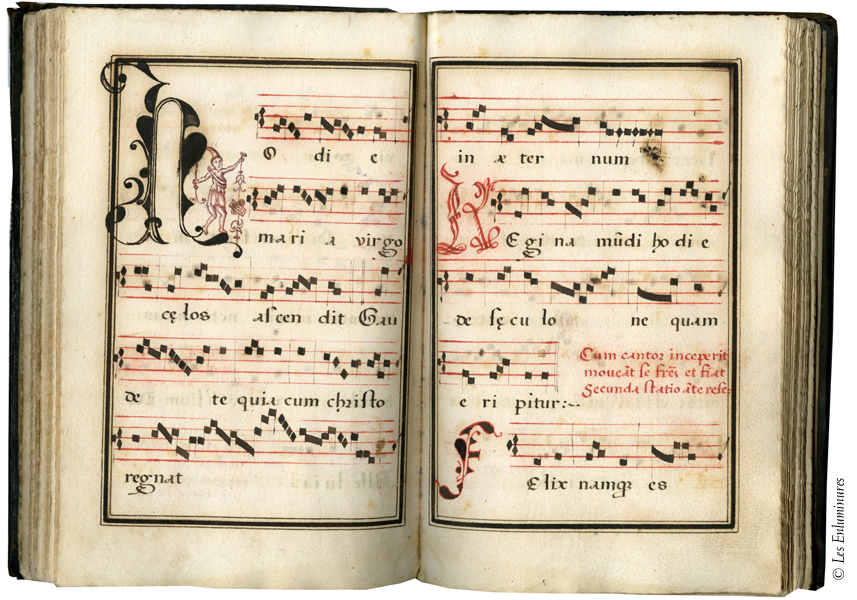 HO di e
mari a virgo
cęlos ascen dit Gau
de te quia cum christo
regnat
in æ ter num
REgi na mũdi ho di e
de sęcu lo ne quam
Cum cantor inceperit
moveãt se fr̃es et fiat
Secunda statio ãte
e ri pitur:~
FElix namq̃ es
© Les Enluminures